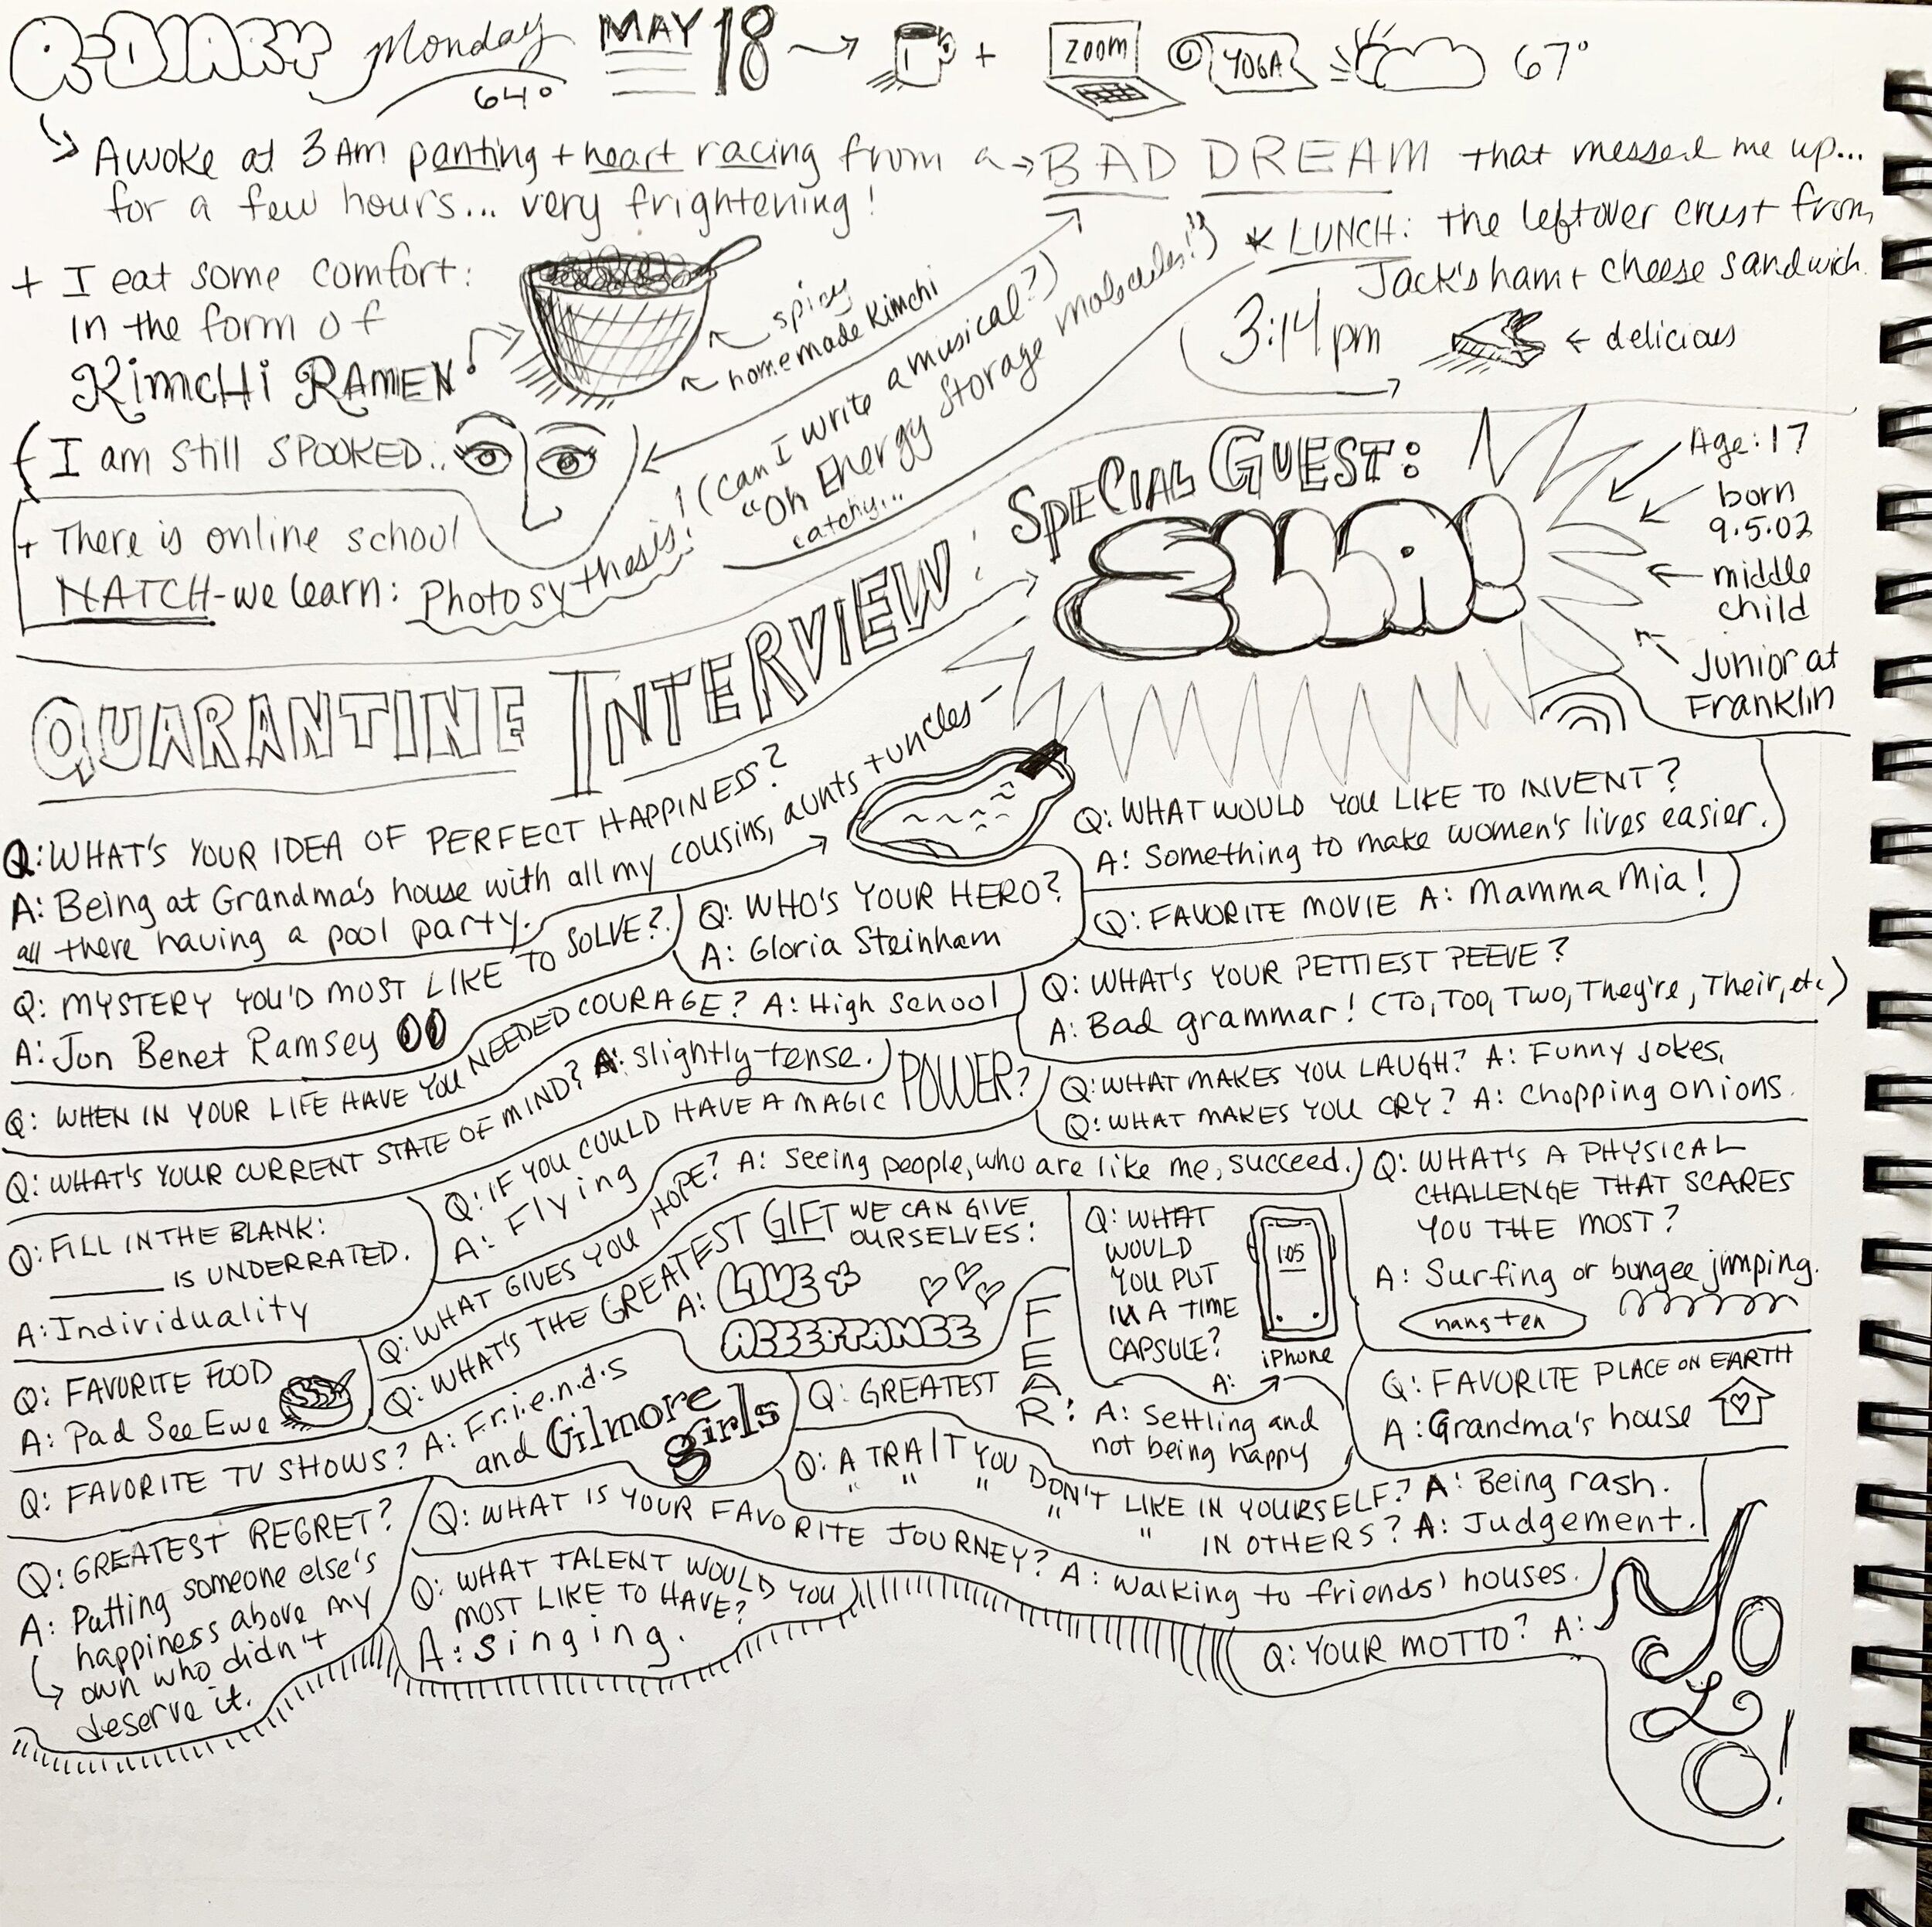 Q-DIARY Monday MAY 18 ZOOM YOGA 67°
64°
Awoke at 3 AM panting + heart racing from a BAD DREAM that messed me up...
for a few hours... very frightening!
+ I eat some comfort:
in the form of
KimcHi RAMEN
spicy
homemade Kimchi
* LUNCH: the leftover crust from
Jack's ham + cheese sandwich.
3:14 pm
delicious
I am still SPOOKED..
+ There is online school
NATCH - we learn: Photosythesis!
! (Can I write a musical?)
"Oh Energy Storage molecules!")
catchy...
QUARANTINE INTERVIEW: SPECIAL GUEST:
ELLA!
Age: 17
born
9.5.02
middle
child
Junior at
Franklin
Q: WHAT'S YOUR IDEA OF PERFECT HAPPINESS?
A: Being at Grandma's house with all my cousins, aunts + uncles -
all there having a pool party.
Q: WHAT WOULD YOU LIKE TO INVENT?
A: Something to make women's lives easier.
Q: WHO'S YOUR HERO?
A: Gloria Steinham
Q: FAVORITE MOVIE A: Mamma Mia!
Q: MYSTERY YOU'D MOST LIKE TO SOLVE?
A: Jon Benet Ramsey
Q: WHAT'S YOUR PETTIEST PEEVE?
A: Bad grammar! (To, Too, Two, They're, Their, etc.)
Q: WHEN IN YOUR LIFE HAVE YOU NEEDED COURAGE? A: High school
Q: WHAT'S YOUR CURRENT STATE OF MIND? A: slightly-tense.
Q: WHAT MAKES YOU LAUGH? A: Funny jokes.
Q: WHAT MAKES YOU CRY? A: Chopping onions.
Q: IF YOU COULD HAVE A MAGIC POWER?
A: Flying
Q: FILL IN THE BLANK:
______ IS UNDERRATED.
A: Individuality
Q: WHAT GIVES YOU HOPE? A: Seeing people, who are like me, succeed.
Q: WHAT'S THE GREATEST GIFT WE CAN GIVE
OURSELVES:
A: LOVE +
ACCEPTANCE
Q: WHAT
WOULD
YOU PUT
IN A TIME
CAPSULE?
A:
1:05
iPhone
Q: WHAT'S A PHYSICAL
CHALLENGE THAT SCARES
YOU THE MOST?
A: Surfing or bungee jumping.
hang-ten
Q: FAVORITE FOOD
A: Pad See Ewe
Q: FAVORITE TV SHOWS? A: F.r.i.e.n.d.s
and Gilmore
girls
Q: GREATEST FEAR: A: Settling and
not being happy
Q: FAVORITE PLACE ON EARTH
A: Grandma's house
Q: A TRAIT YOU DON'T LIKE IN YOURSELF? A: Being rash.
" " " " " IN OTHERS? A: Judgement.
Q: GREATEST REGRET?
A: Putting someone else's
happiness above my
own who didn't
deserve it.
Q: WHAT IS YOUR FAVORITE JOURNEY? A: Walking to friends' houses.
Q: WHAT TALENT WOULD YOU
MOST LIKE TO HAVE?
A: Singing.
Q: YOUR MOTTO? A: YOLO!